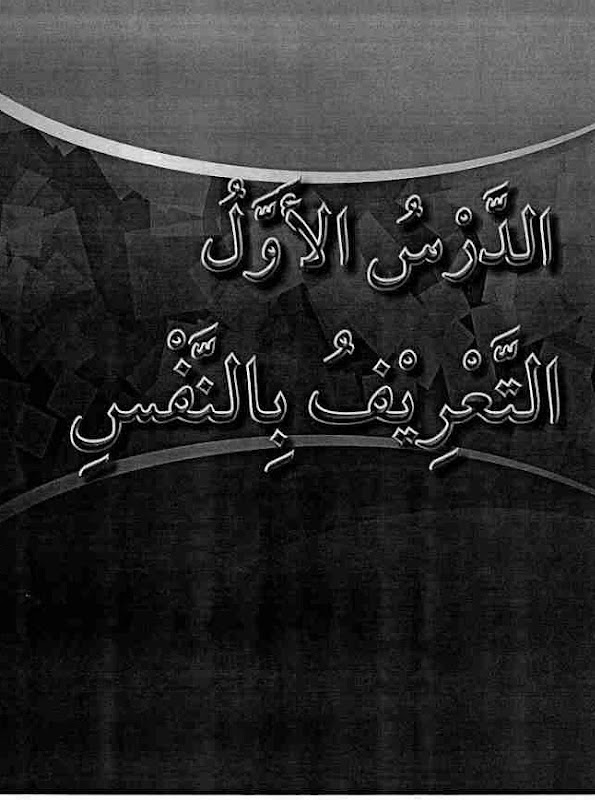 الدَّرْسُ الأَوَّلُ
التَّعْرِيْفُ بِالنَّفْسِ